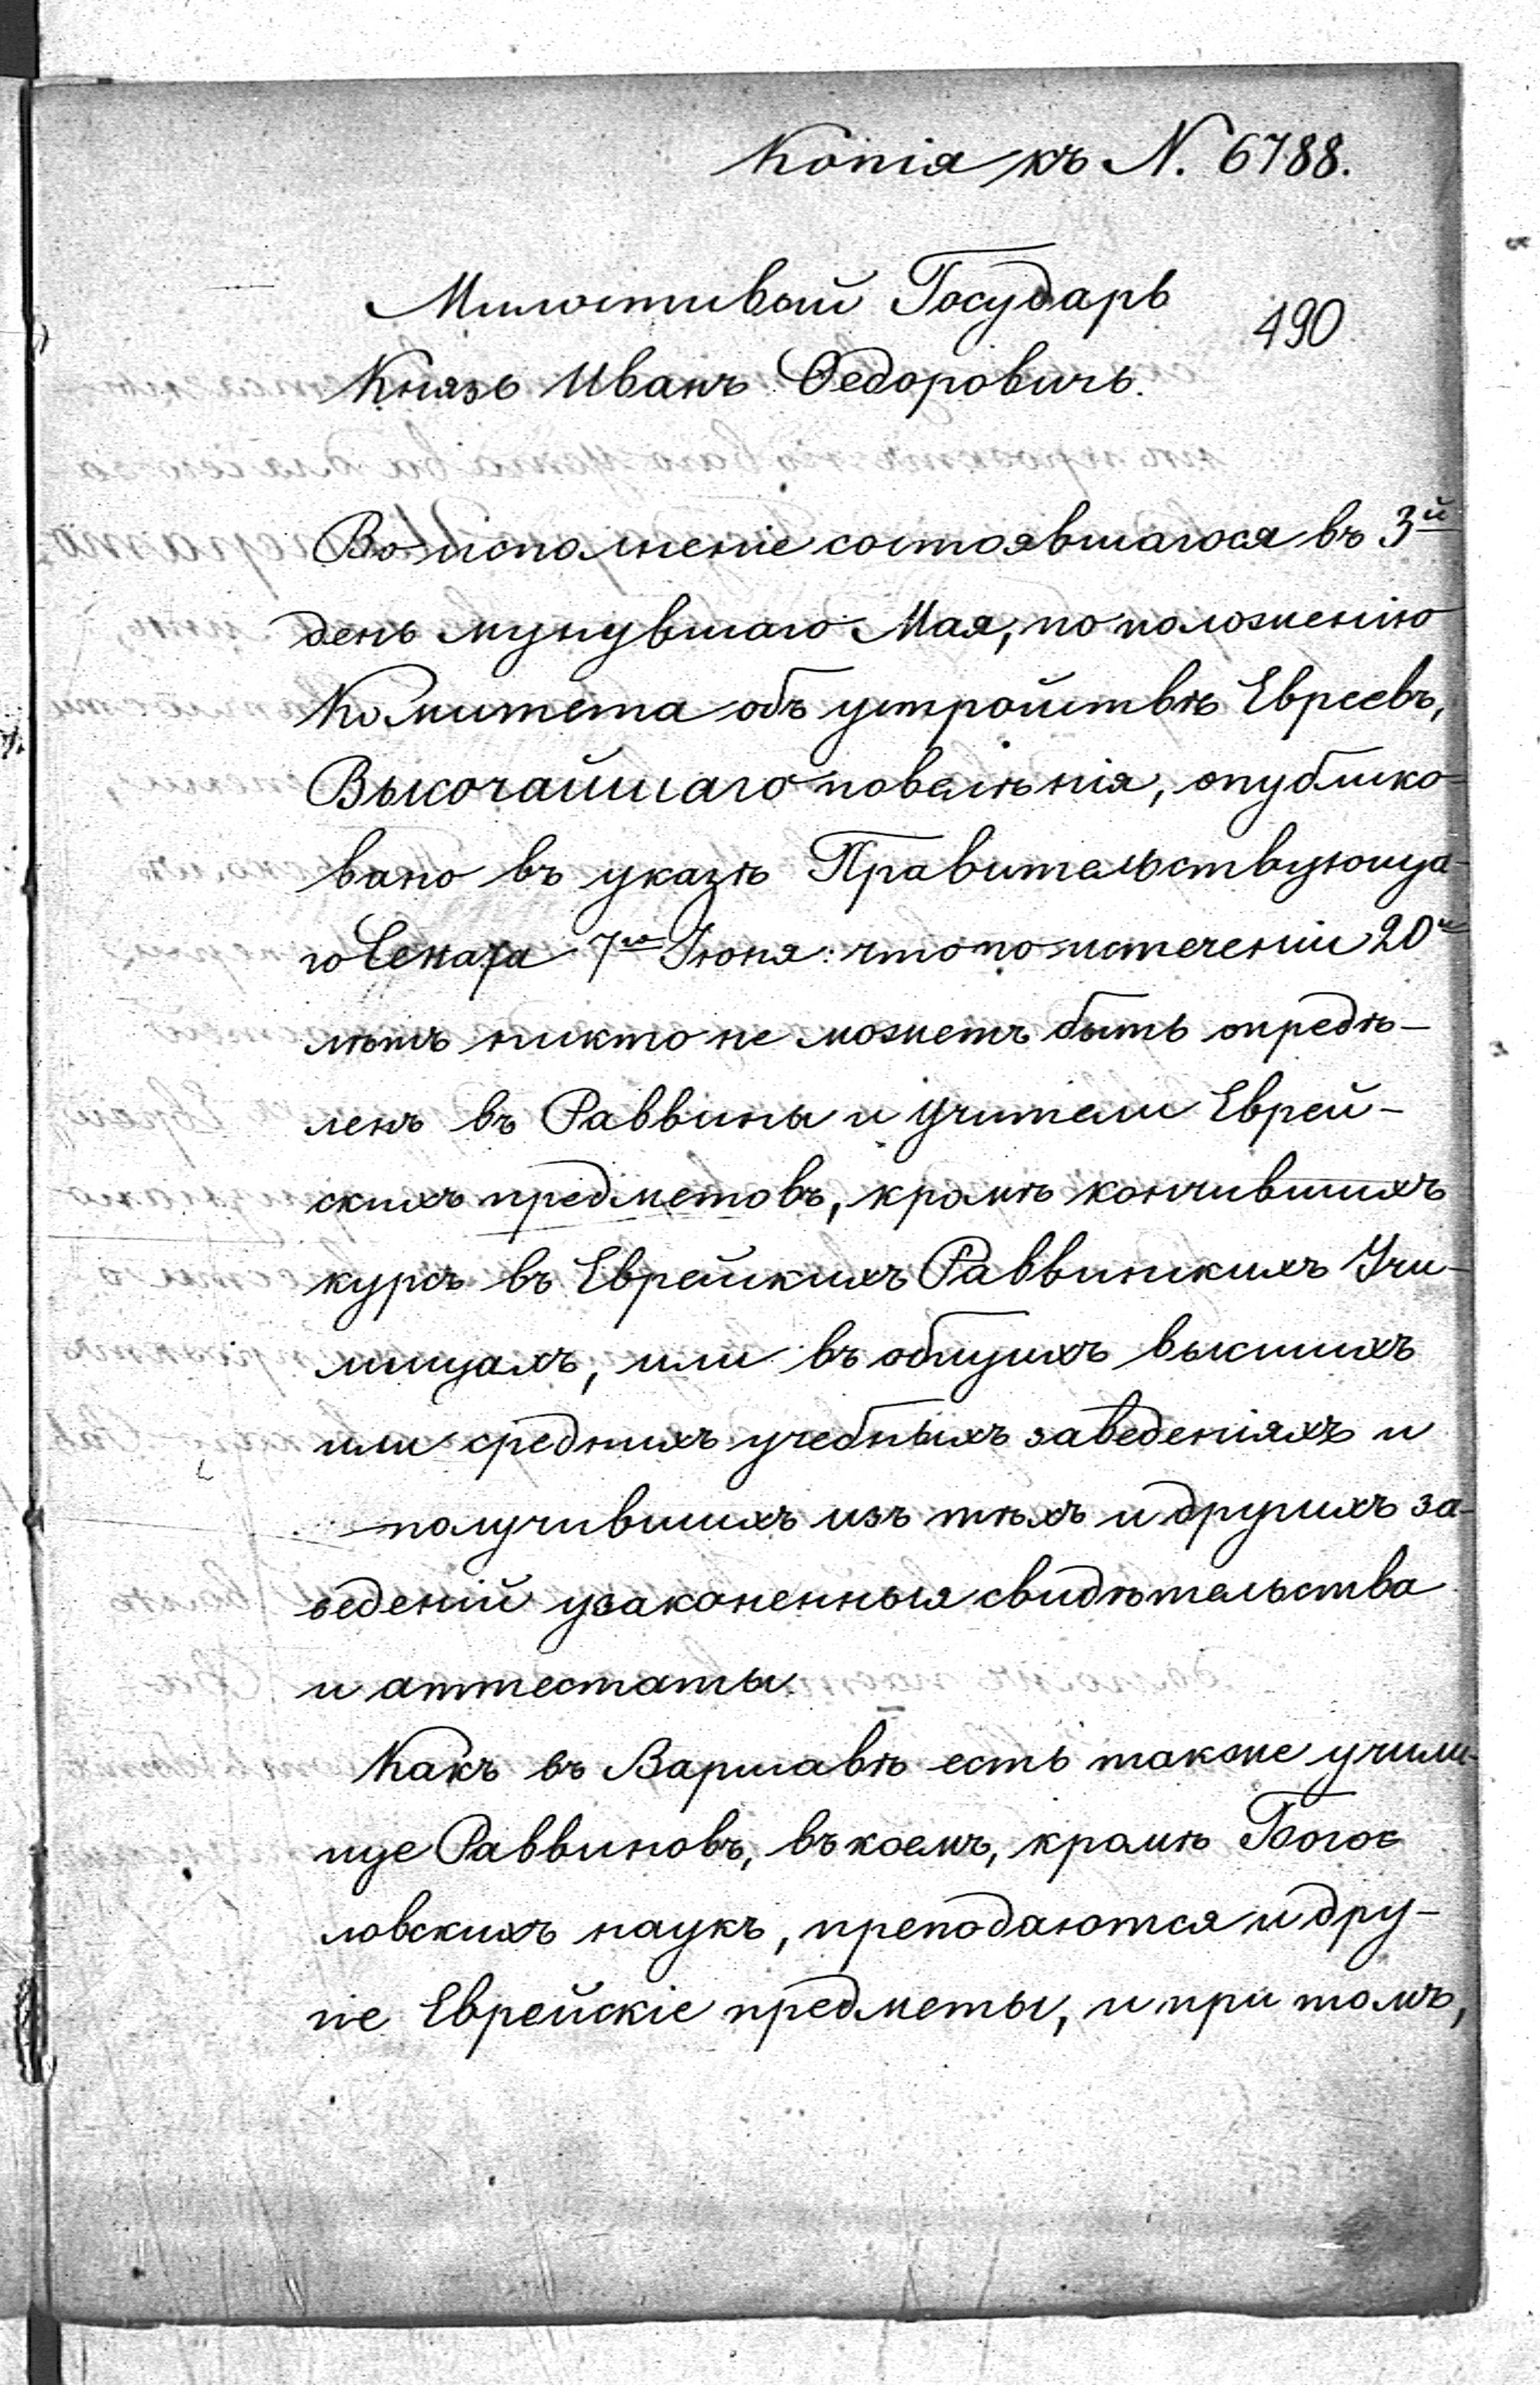 Копія къ N. 6788.
Милостивый Государь
490
Князь Иванъ Ѳедоровичъ.
Во исполненіе состоявшагося въ 3й
день минувшаго Мая, по положенію
Комитета объ устройствѣ Евреевъ,
Высочайшаго повелѣнія, опублико-
вано въ указѣ Правительствующа-
го Сената 7го Іюня: что по истеченіи 20и
лѣтъ никто не можетъ быть опредѣ-
ленъ въ Раввины и Учители Еврей-
скихъ предметовъ, кромѣ кончившихъ
курсъ въ Еврейскихъ Раввинскихъ Учи-
лищахъ, или въ общихъ высшихъ
или среднихъ учебныхъ заведеніяхъ и
получившихъ изъ тѣхъ и другихъ за-
веденій узаконенныя свидѣтельства
и аттестаты.
Какъ въ Варшавѣ есть также учили-
ще Раввиновъ, въ коемъ, кромѣ Богос
ловскихъ наукъ, преподаются и дру-
гіе Еврейскіе предметы, и при томъ,